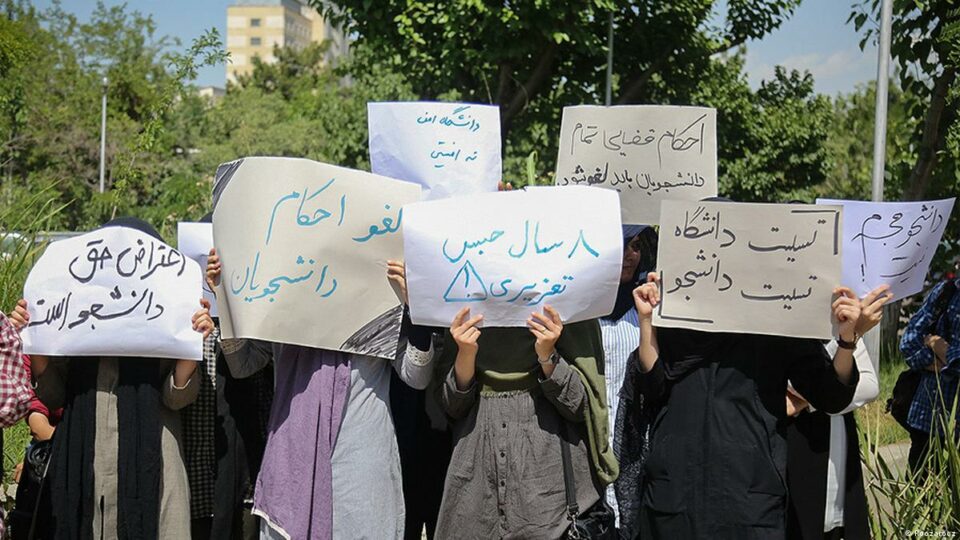 اعتراض حق
دانشجو است
لغو احکام
دانشجویان
دانشگاه امن
نه امنیتی
۸ سال حبس
تعزیری !
احکام قضایی تمام
دانشجویان باید لغو شود.
تسلیت دانشگاه
تسلیت دانشجو
دانشجو مجرم
نیست